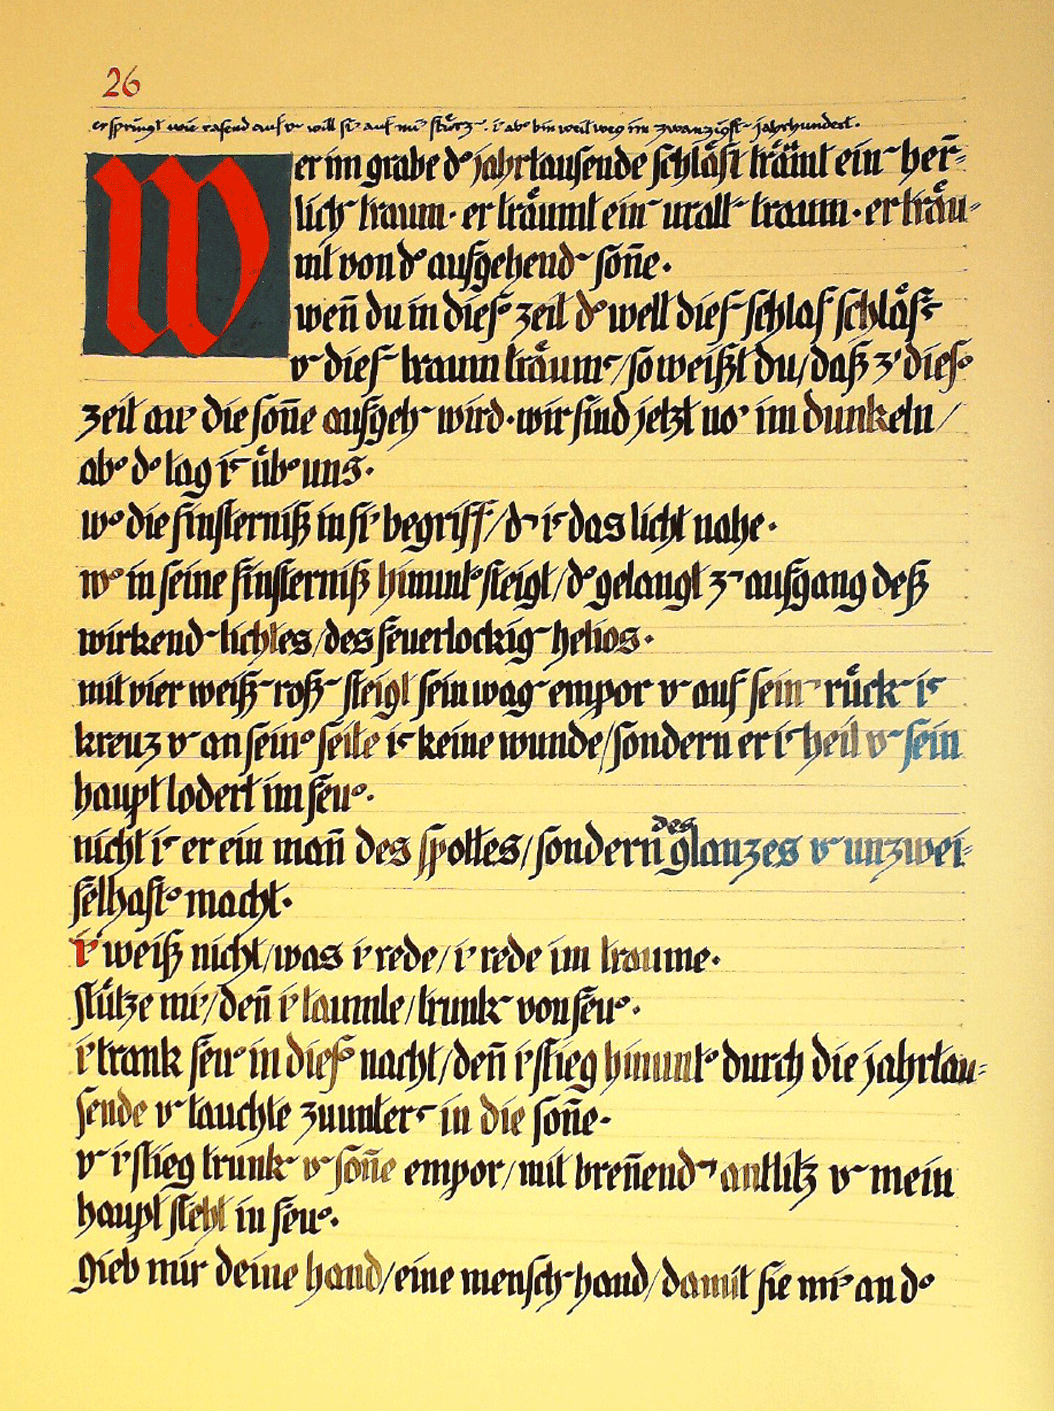 26
er springt wie rasend auf v̄ will si' auf mi' stürz‾. i' ab° bin weit weg im zwanzigst‾ jahrhundert.
Wer im grabe d° jahrtausende schläft träumt ein‾ her̄=
lich‾ traum. er träumt ein‾ uralt‾ traum. er träu=
mt von d° aufgehend‾ soñe.
weñ du in dies° zeit d° welt dies‾ schlaf schläfst
v‾ dies‾ traum träumst/so weißt du/daß z' dies°
zeit au' die soñe aufgeh‾ wird. wir sind jetzt no' im dunkeln/
ab° d° tag ist üb° uns.
w° die finsterniß in si' begriff/d‾ ist das licht nahe.
w° in seine finsterniß hinunt° steigt/d° gelangt z‾ aufgang deß
wirkend‾ lichtes/des feuerlockig‾ helios.
mit vier weiß‾ roß‾ steigt sein wag‾ empor v‾ auf sein‾ rück‾ ist
kreuz v‾ an sein° seite ist keine wunde/sondern er ist heil v‾ sein
haupt lodert im feu°.
nicht ist er ein mañ des spottes/sondern des glanzes v‾ unzwei=
felhaft° macht.
i' weiß nicht/was i' rede/i' rede im traume.
stütze mi'/deñ i' taumle/trunk‾ von feu°.
i' trank feu° in dies° nacht/deñ i' stieg hinunt° durch die jahrtau=
sende v‾ tauchte zuunterst in die soñe.
v‾ i' stieg trunk‾ v‾ soñe empor/mit breñend‾ antlitz v‾ mein
haupt steht in feu°.
gieb mir deine hand/eine mensch‾hand/damit sie mi' an d°